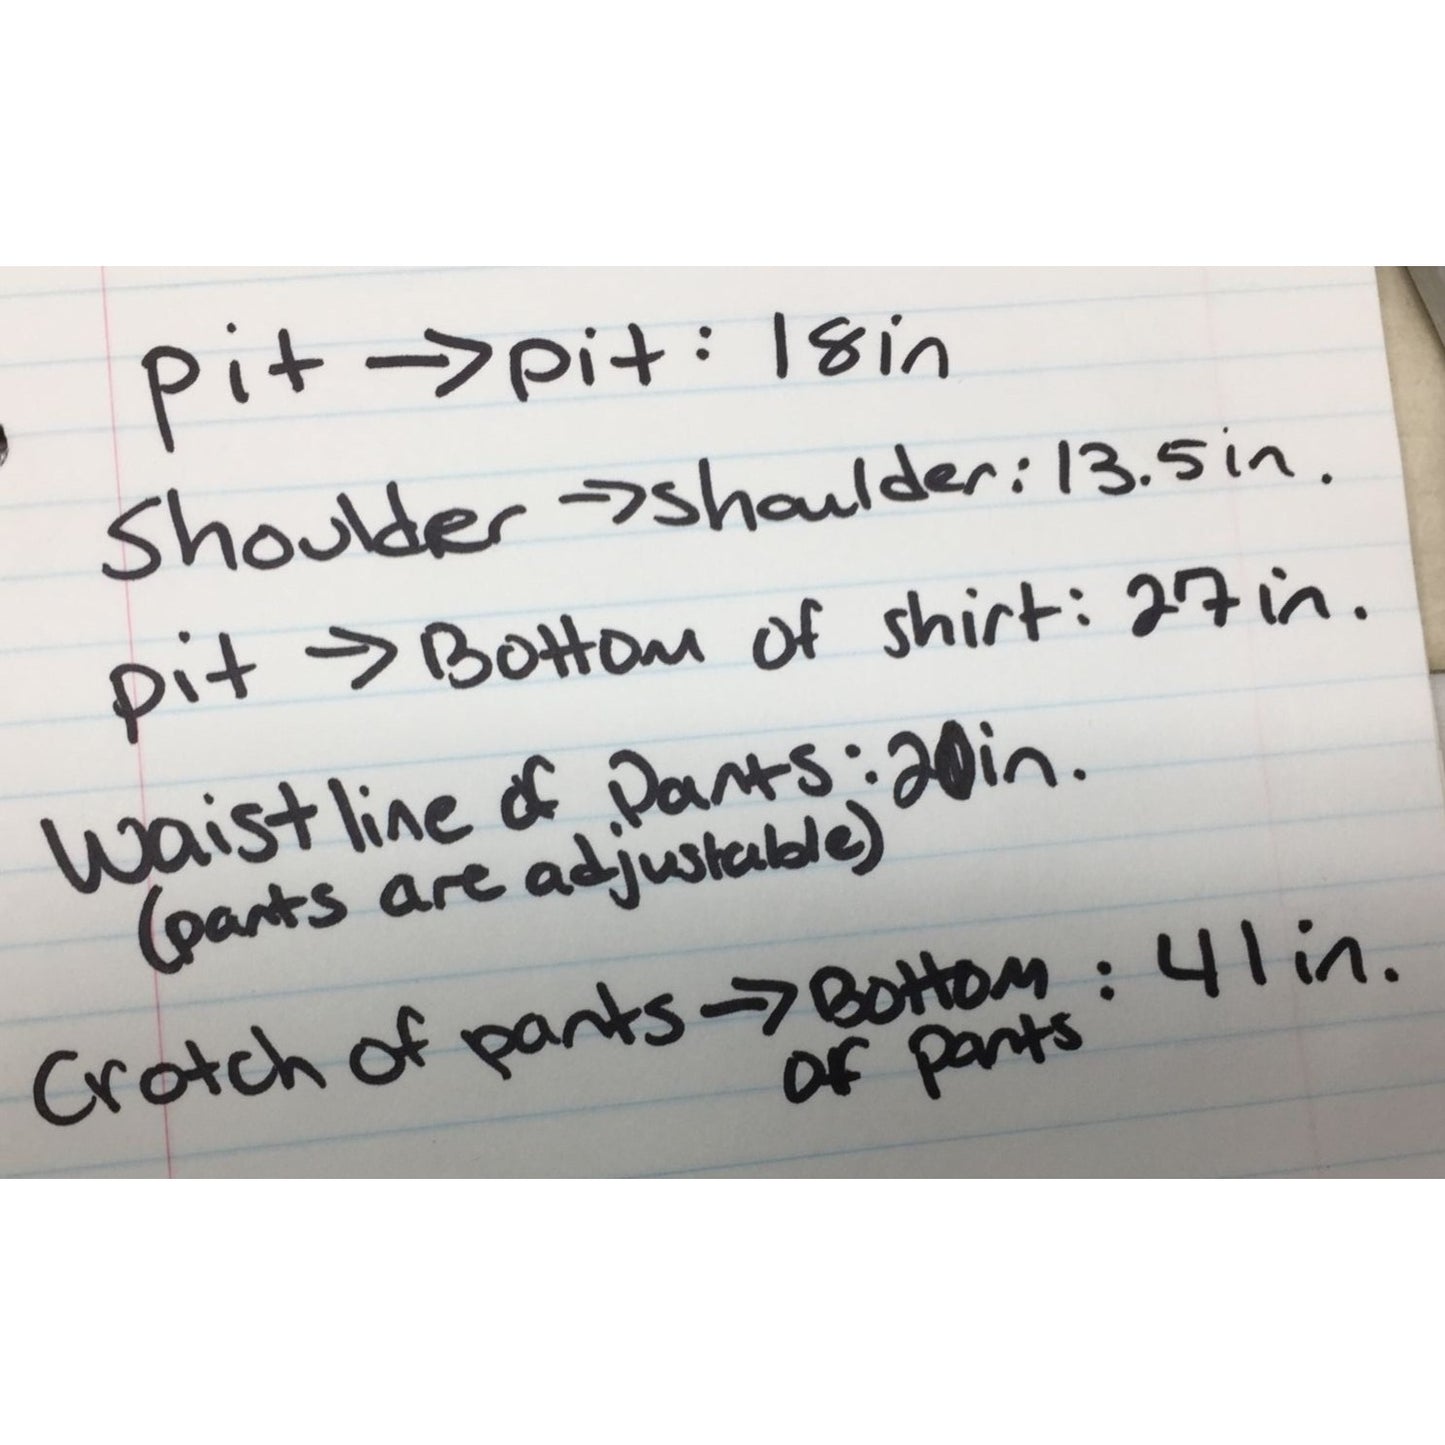 pit → pit: 18in
Shoulder → shoulder: 13.5in.
pit → Bottom of shirt: 27in.
Waistline of Pants: 20in.
(pants are adjustable)
Crotch of pants → Bottom : 41in.
of pants